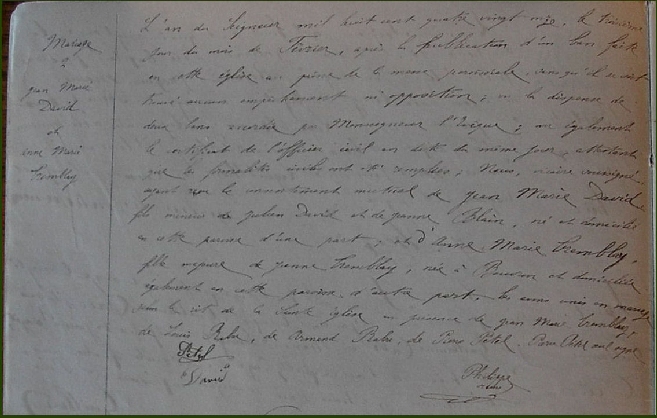 Mariage
de
jean Marie
David
et
anne Marie
Tremblay
L'an du Seigneur mil huit cent quatre vingt onze, le
jour du mois de Février, après la publication d'un ban faite
en cette église au prône de la messe paroissiale sans qu'il se soit
trouvé aucun empêchement ni opposition; vu la dispense de
deux bans accordée par Monseigneur l'Evêque; vu également
le certificat de l'officier civil en date du même jour, attestant
que les formalités civiles ont été remplies; Nous, vicaire soussigné
ayant reçu le consentement mutuel de jean Marie David
fils mineur de julien David et de jeanne Blain, né et domicilié
en cette paroisse d'une part; et d'Anne Marie Tremblay,
fille majeure de jeanne Tremblay, née à et domiciliée
également en cette paroisse d'autre part, les avons unis en mariage
de la Sainte église en présence de jean Marie Tremblay,
de Louis, de Armand, de Pétel
Pétel
David
Philippe